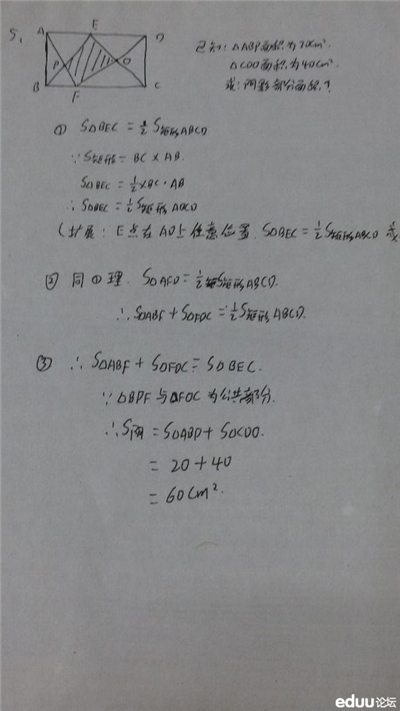 5.
A E D
P O
B F C
已知: △ABP面积为20cm².
△COD面积为40cm².
求: 阴影部分面积?
① S△BEC = ½ S矩形ABCD
∵ S矩形 = BC × AB.
S△BEC = ½ × BC · AB
∴ S△BEC = ½ S矩形ABCD
(扩展: E点在AD上任意位置. S△BEC = ½ S矩形ABCD
② 同①理. S△AFD = ½ S矩形ABCD.
∴ S△ABF + S△FDC = ½ S矩形ABCD.
③ ∴ S△ABF + S△FDC = S△BEC.
∵ △BPF与△FOC为公共部分.
∴ S阴 = S△ABP + S△COD.
= 20 + 40
= 60cm².
eduu论坛